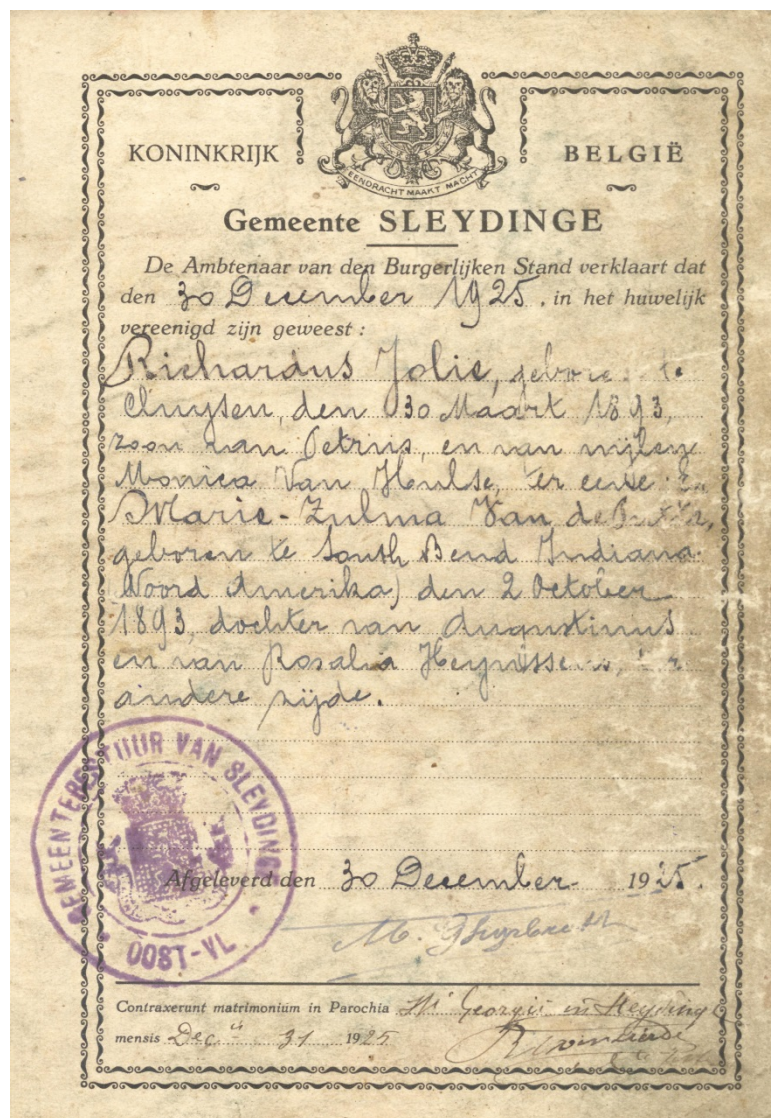 EENDRACHT MAAKT MACHT
KONINKRIJK BELGIË
Gemeente SLEYDINGE
De Ambtenaar van den Burgerlijken Stand verklaart dat
den 30 December 1925, in het huwelijk
vereenigd zijn geweest :
Richardus Jolie, geboren te
Cluysen, den 30 Maart 1893,
zoon van Petrus, en van wijlen
Monica Van Hulse, ter eene
Marie-Zulma Van de
geboren te South Bend Indiana
Noord Amerika) den 2 October
1893, dochter van Augustinus
en van Rosalia Heynssens,
andere zijde.
GEMEENTEBESTUUR VAN SLEYDINGE
OOST-VL
Afgeleverd den 30 December 1925.
Contraxerunt matrimonium in Parochia Sti Georgii in Sleydinge
mensis Dec 31 1925